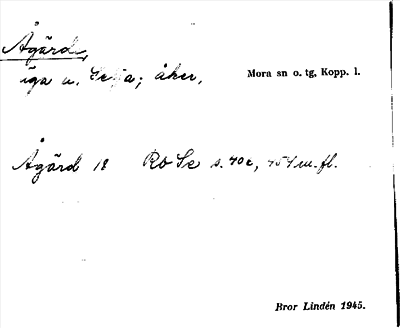 Ågärd,
äga u. Selja; åker.
Mora sn o. tg, Kopp. l.
Ågärd 18 Ro Se s. 40c, 454 m. fl.
Bror Lindén 1945.